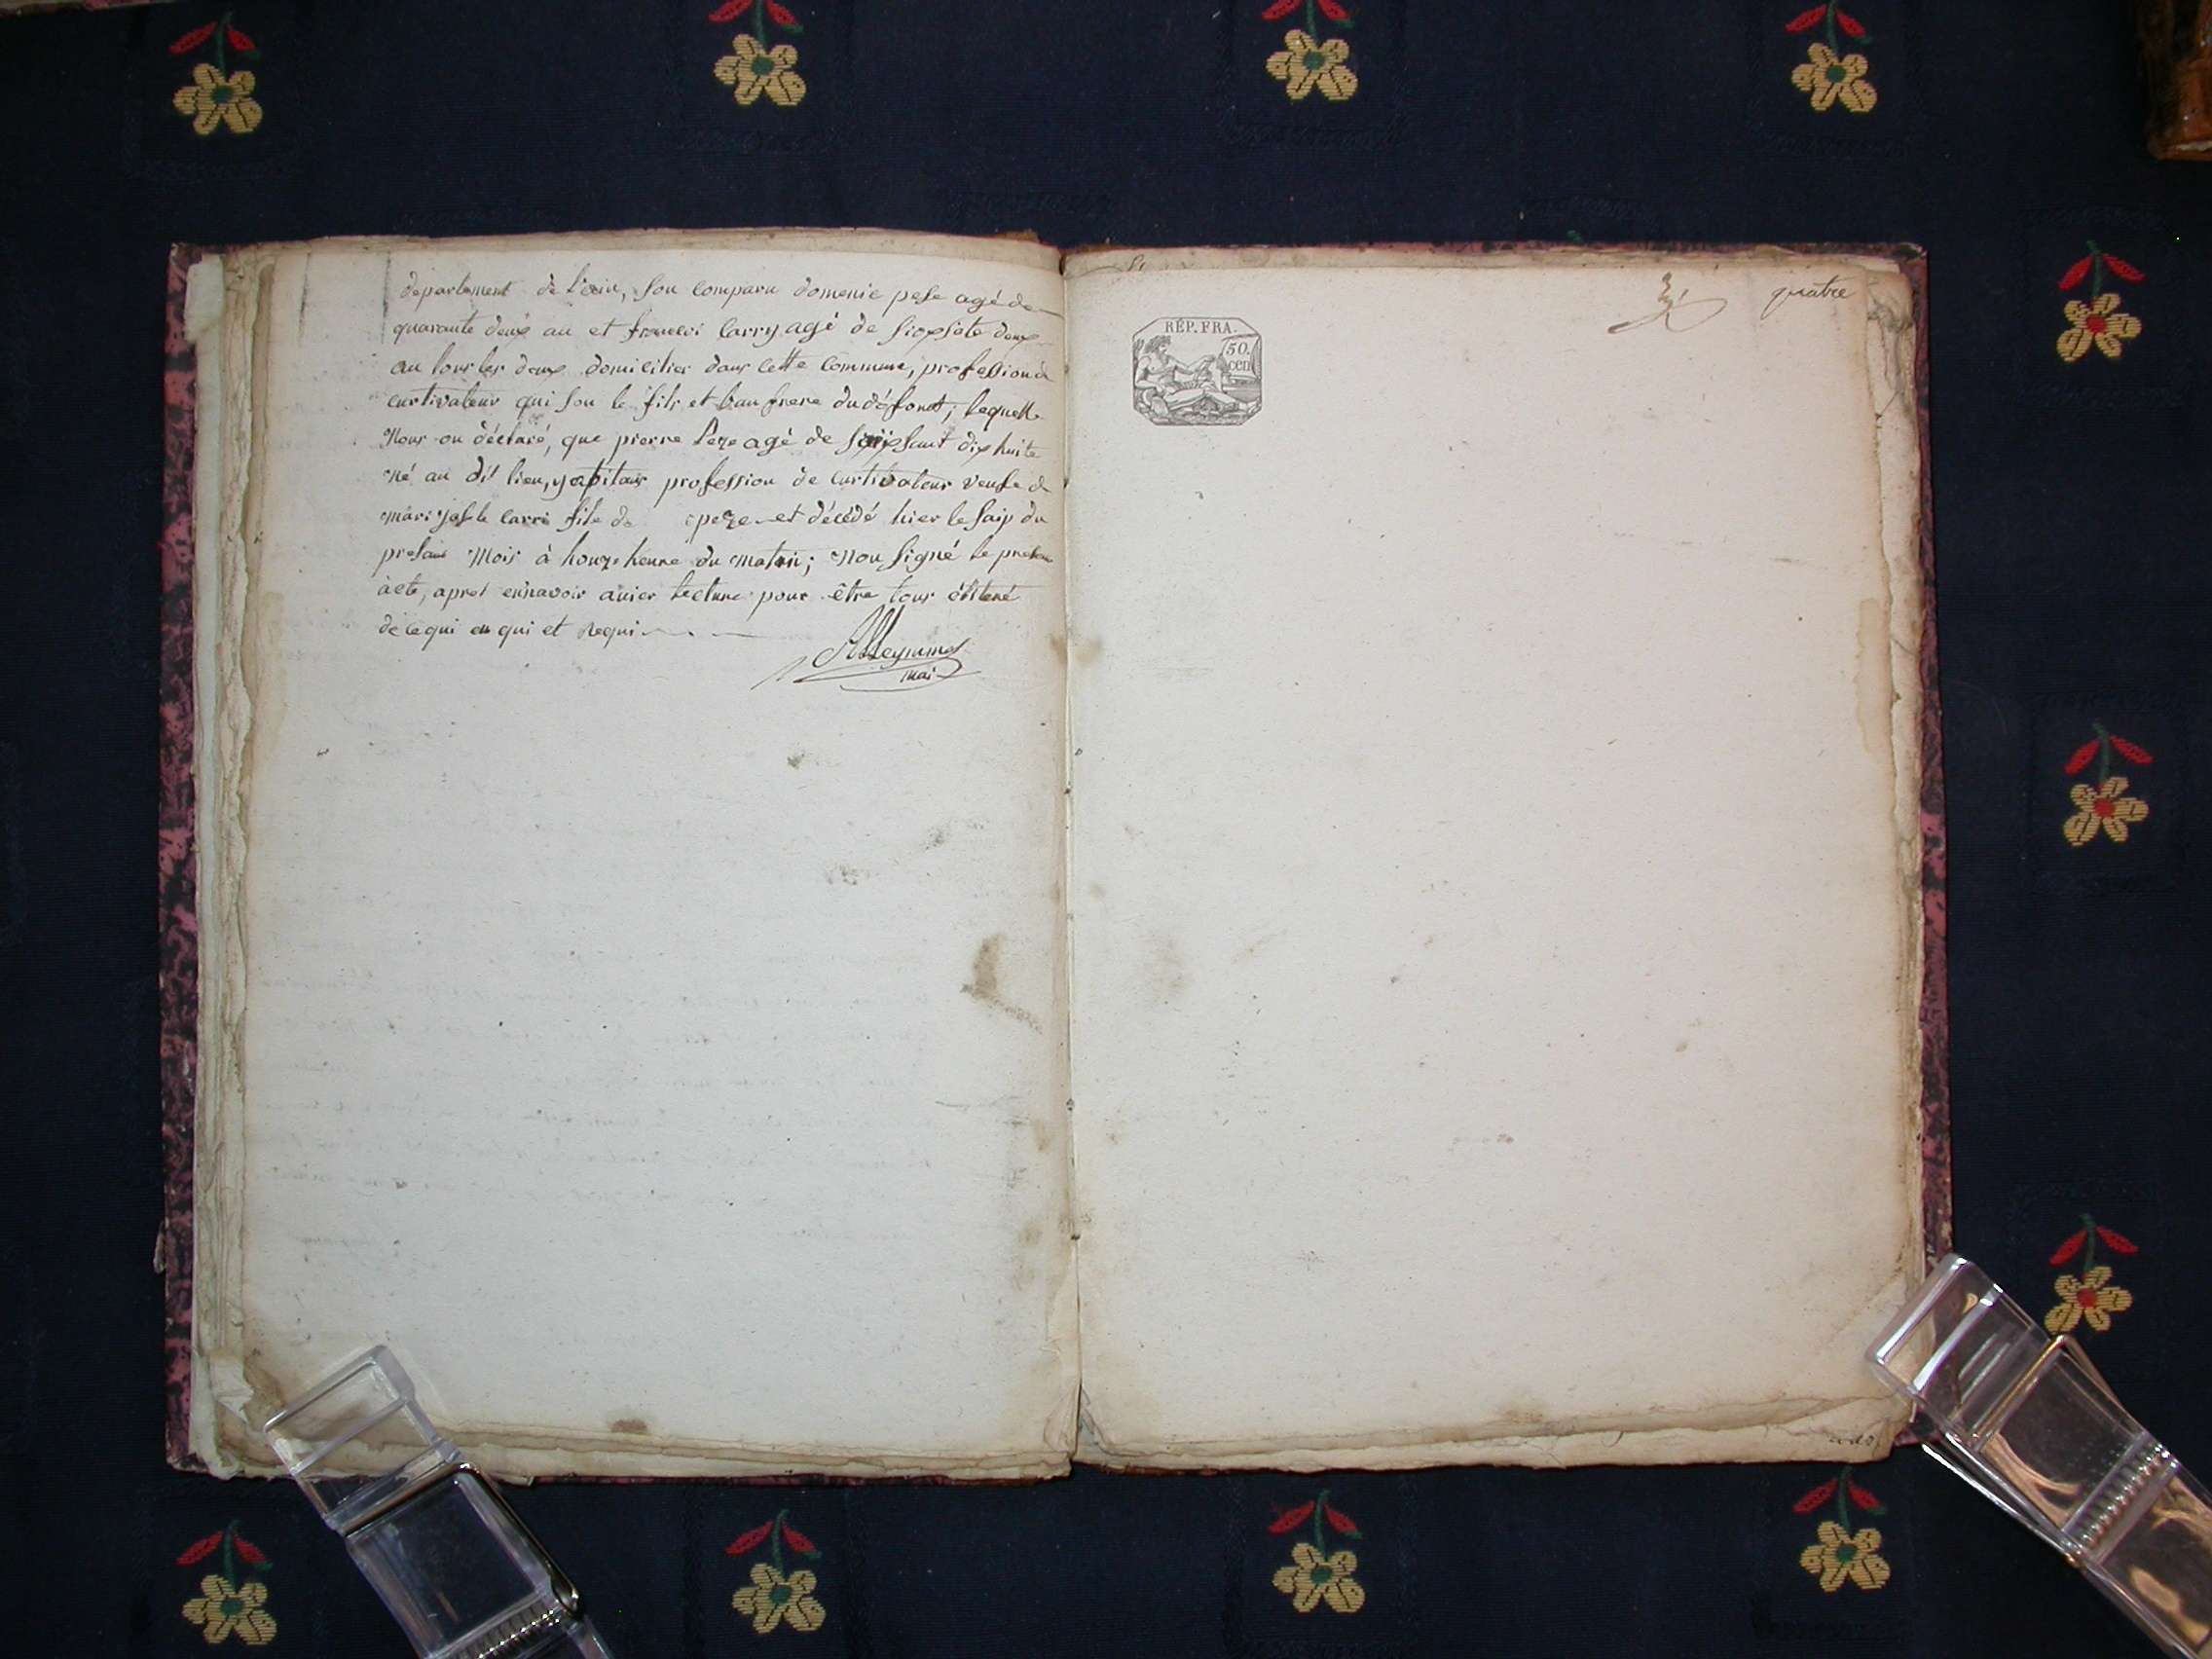 département de l'ain, son comparu domenic pese agé de
quarante deux an et francoi Carry agé de siopsate deux
an tous les deux domicilier dans cette commune, profession de
curtivateur qui son le fils et bau frere du défont; lequelle
Nous on déclaré, que pierre Peze agé de soixsant dix huite
né au dit lieu, y profession de curtivateur veufe de
mari carri fils de peze et décédé hier le saip du
presant Mois à honze heure du matin; Nou signé le presen
acte, apres ennavoir lecture pour être tour
de ce qui en qui et Requi
mai
quatre
RÉP. FRA.
50.
cen